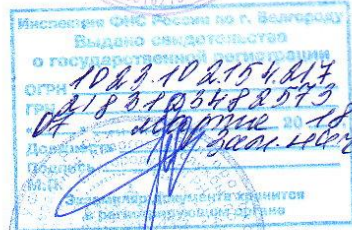 Инспекция ФНС России по г. Белгороду
Выдано свидетельство
о государственной регистрации
ОГРН 1023102154217
ГРН 2183123482573
07 марта 2018
Должность Зам. нач
Подпись
М.П.
Экземпляр документа хранится
в регистрирующем органе